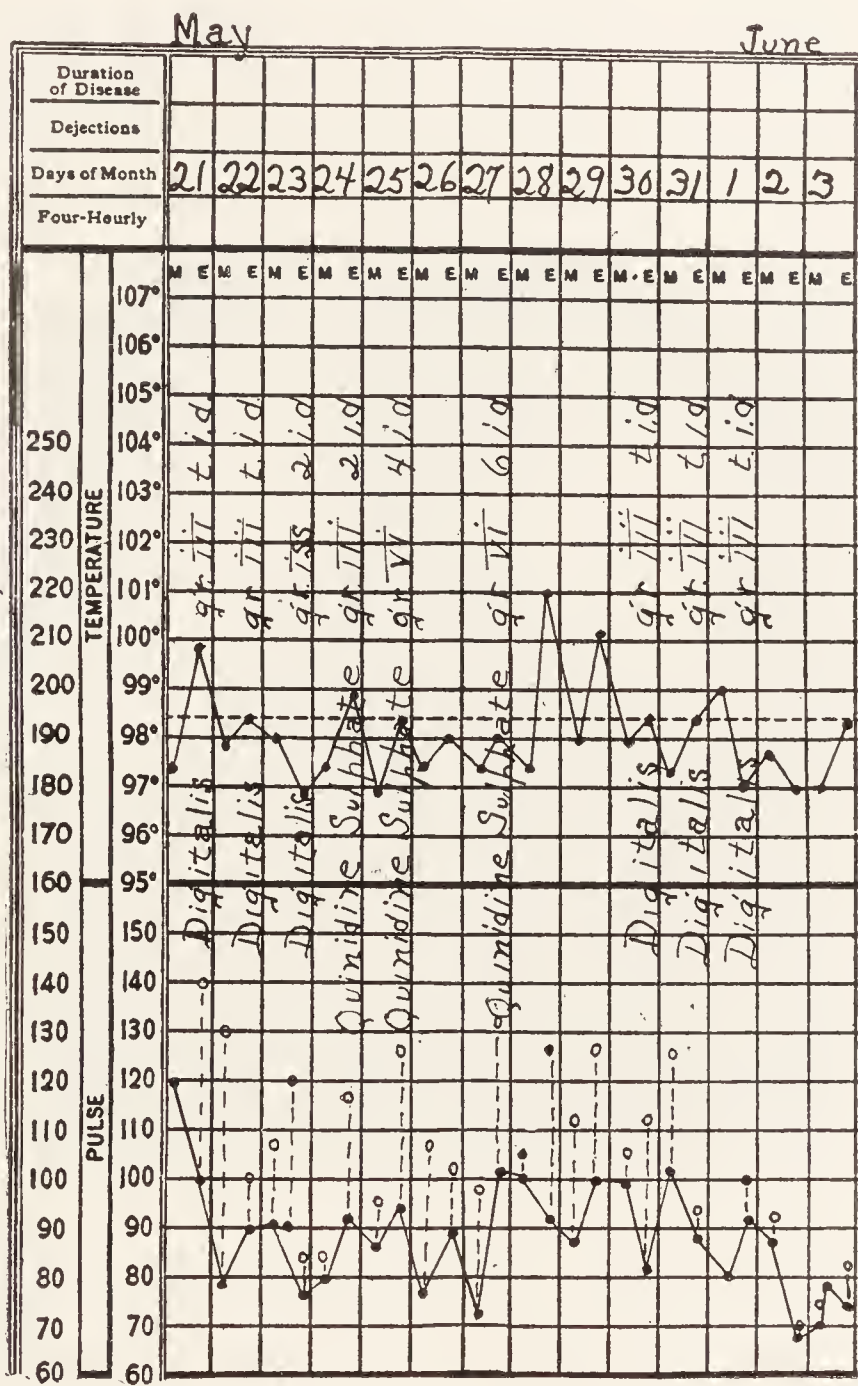 May June
Duration
of Disease
Dejections
Days of Month 21 22 23 24 25 26 27 28 29 30 31 1 2 3
Four-Hourly
M E M E M E M E M E M E M E M E M E M E M E M E M E M E
TEMPERATURE
PULSE
250
240
230
220
210
200
190
180
170
160
150
140
130
120
110
100
90
80
70
60
107°
106°
105°
104°
103°
102°
101°
100°
99°
98°
97°
96°
95°
150
140
130
120
110
100
90
80
70
60
Digitalis gr. iii t.i.d.
Digitalis gr iii t.i.d.
Digitalis gr. iss 2 i.d
Quinidine Sulphate gr iii 2 i.d
Quinidine Sulphate gr vi 4 i.d
Quinidine Sulphate gr vi 6 i.d
Digitalis gr iii t.i.d
Digitalis gr. iii t.i.d
Digitalis gr iii t.i.d